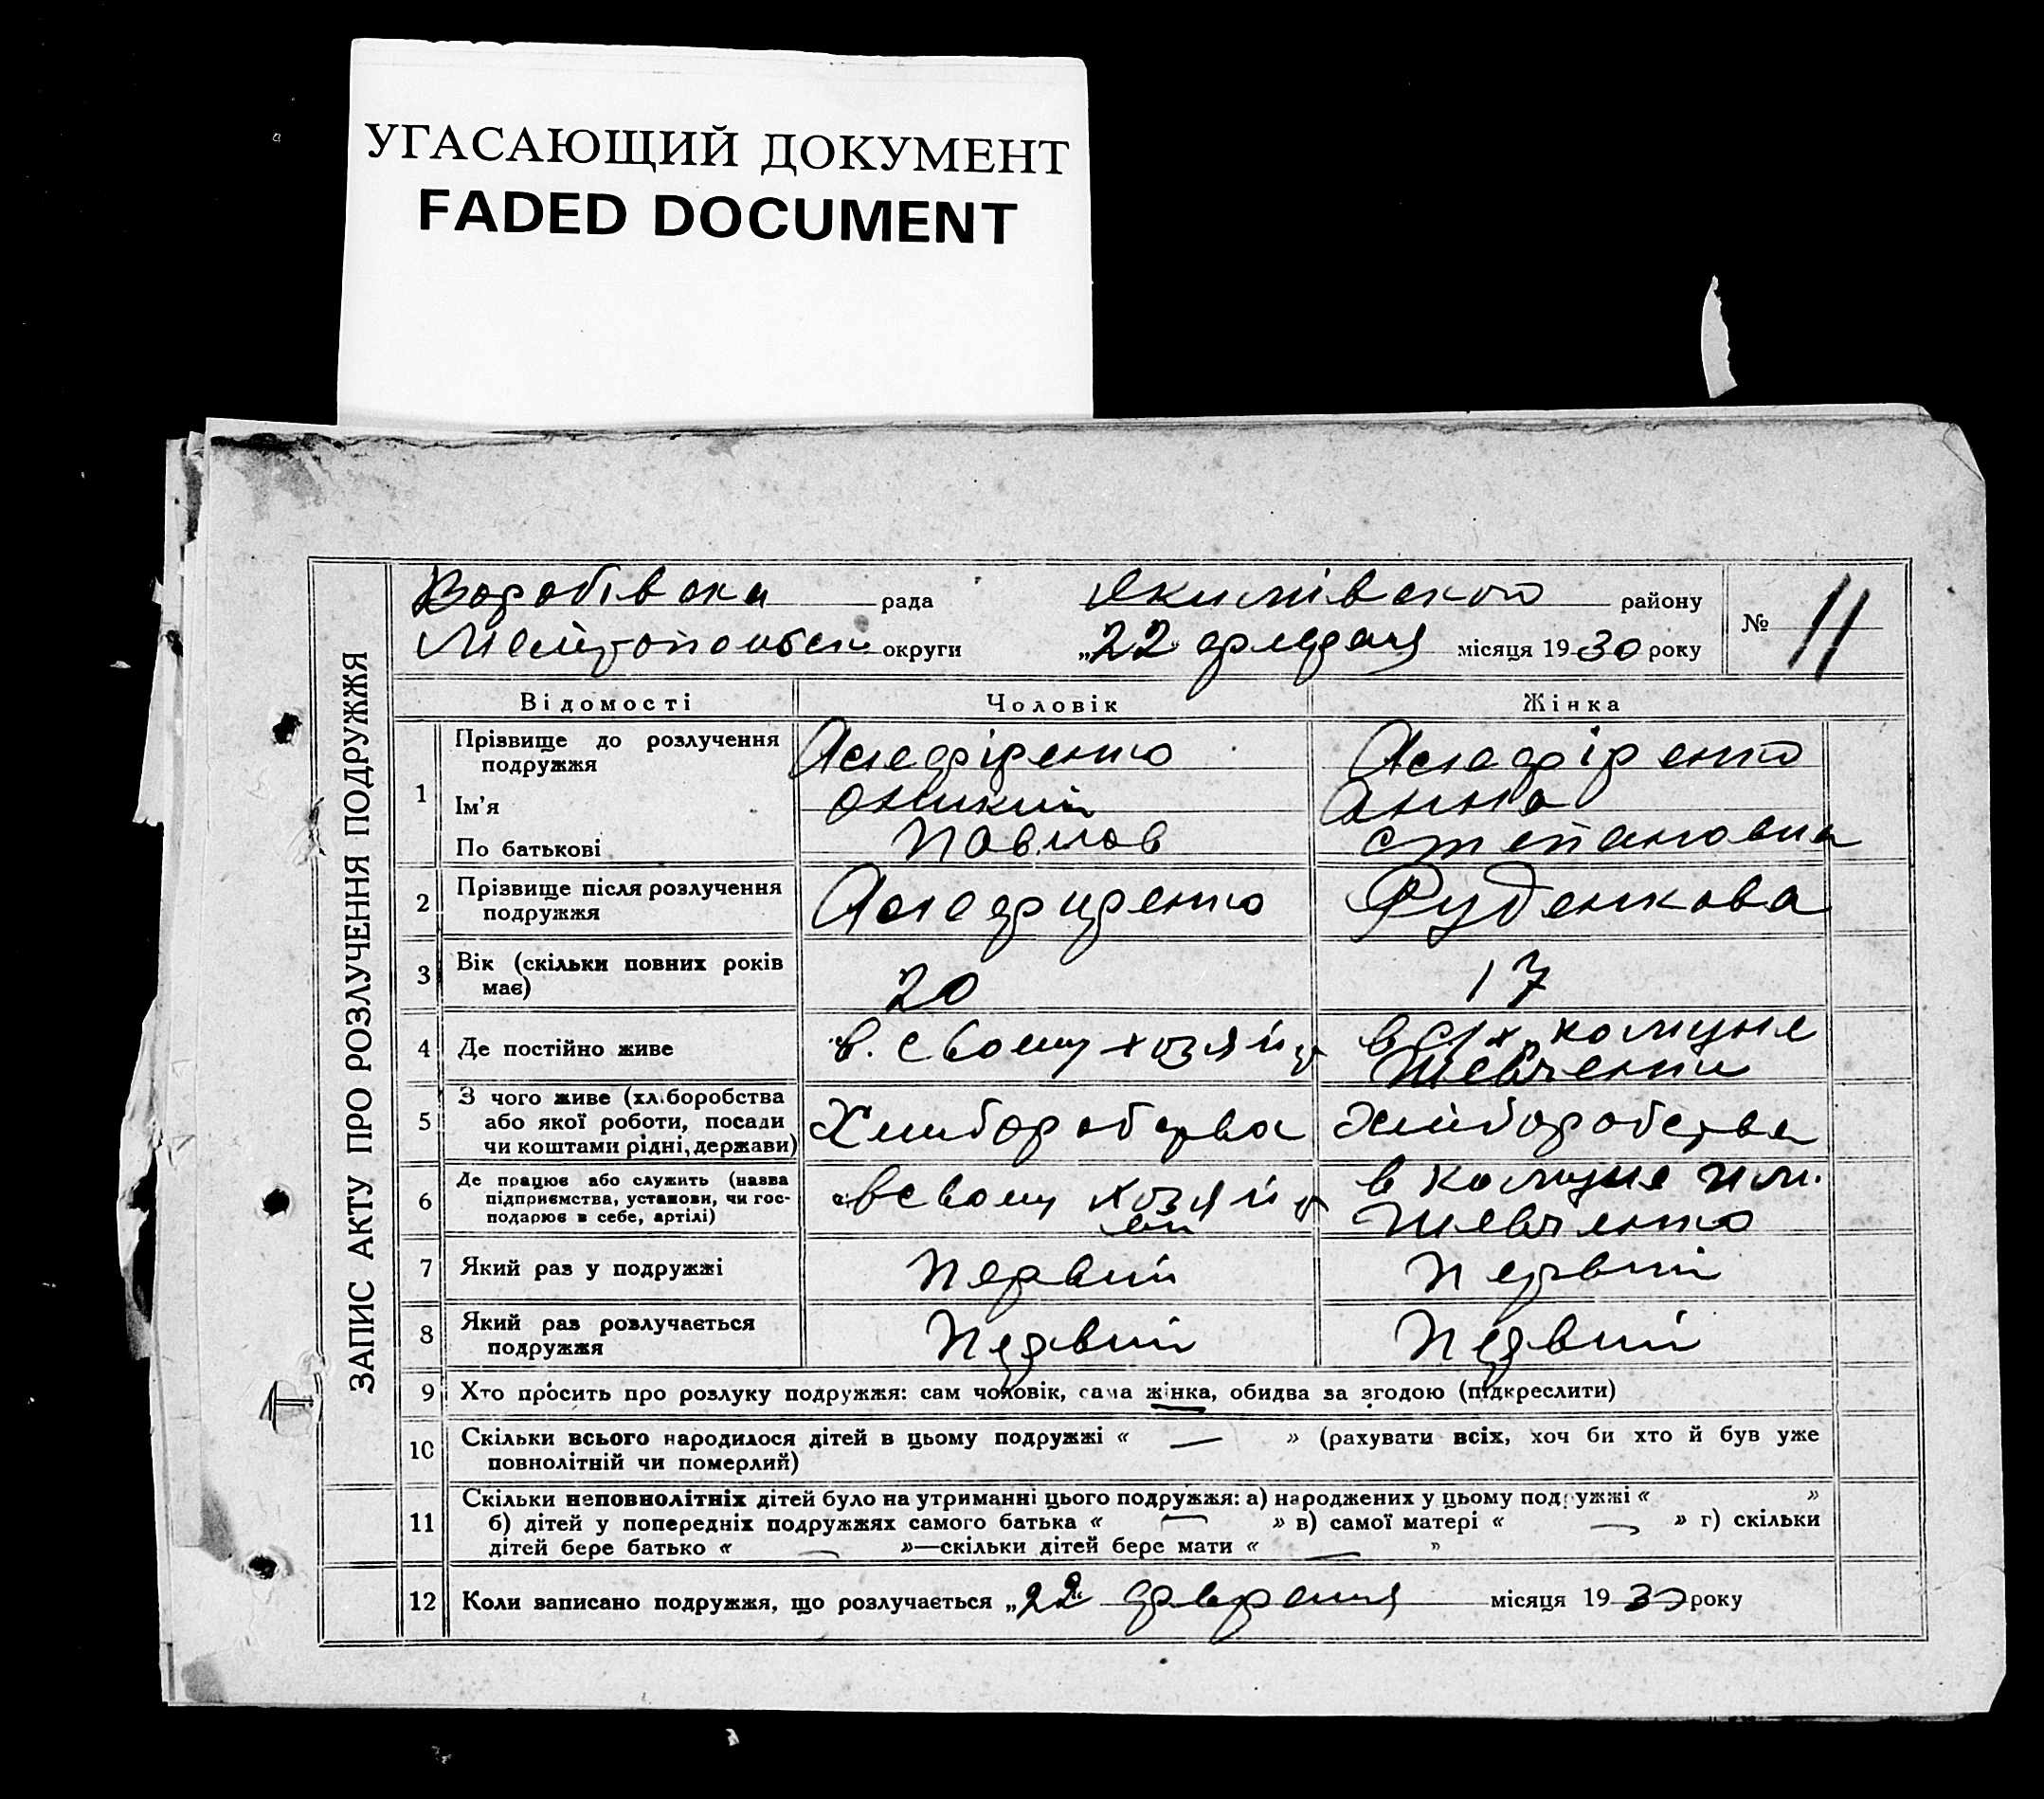 УГАСАЮЩИЙ ДОКУМЕНТ
FADED DOCUMENT
ЗАПИС АКТУ ПРО РОЗЛУЧЕННЯ ПОДРУЖЖЯ
Воробівска рада Якимівского району № 11
округи „22“ місяця 1930 року
Відомості Чоловік Жінка
1 Прізвище до розлучення подружжя
Ім'я Оникий Анна
По батькові Павлов Степановна
2 Прізвище після розлучення Руденкова
подружжя
3 Вік (скільки повних років 20 17
має)
4 Де постійно живе в своему хозяйст в с/х комуне
Шевченка
5 З чого живе (хліборобства
або якої роботи, посади Хлиборобства Хлиборобства
чи коштами рідні, держави)
6 Де працює або служить (назва
підприємства, установи, чи гос-
подарює в себе, артілі) в своему хозяйст в комуне им.
Шевченко
7 Який раз у подружжі Первий Первий
8 Який раз розлучається Первий Первий
подружжя
9 Хто просить про розлуку подружжя: сам чоловік, сама жінка, обидва за згодою (підкреслити)
10 Скільки всього народилося дітей в цьому подружжі « — » (рахувати всіх, хоч би хто й був уже
повнолітній чи померлий)
11 Скільки неповнолітніх дітей було на утриманні цього подружжя: а) народжених у цьому подружжі « »
б) дітей у попередніх подружжях самого батька « — » в) самої матері « — » г) скільки
дітей бере батько « — »—скільки дітей бере мати « — »
12 Коли записано подружжя, що розлучається „22“ февраля місяця 1930 року